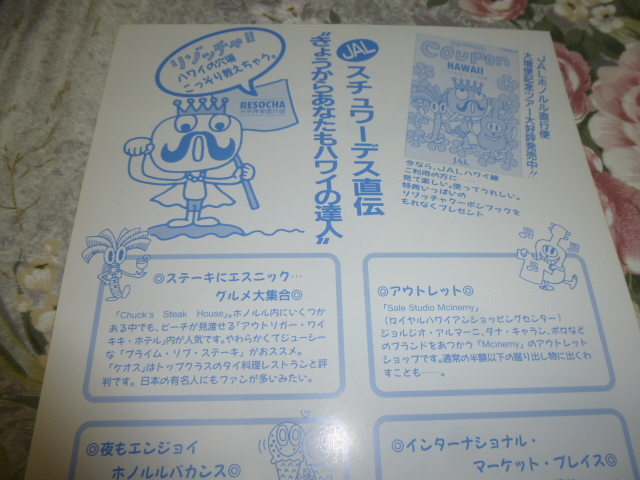 リゾッチャ!!
ハワイの穴場
こっそり教えちゃう。
RESOCHA
JAL スチュワーデス直伝
"きょうからあなたもハワイの達人"
COUPON
HAWAII
JAL
JALホノルル直行便
大増便記念ツアー大好評発売中!!
今なら、JALハワイ線
ご利用の方に…
見て楽しい。使ってうれしい。
特典いっぱいの
リゾッチャクーポンブックを
もれなくプレゼント
◎ステーキにエスニック…
グルメ大集合◎
「Chuck's Steak House」。ホノルル内にいくつか
ある中でも、ビーチが見渡せる「アウトリガー・ワイ
キキ・ホテル」内が人気です。やわらかくてジューシー
な「プライム・リブ・ステーキ」がおススメ。
「ケオス」はトップクラスのタイ料理レストランと評
判です。日本の有名人にもファンが多いみたい。
◎アウトレット◎
「Sale Studio Mcinerny」
(ロイヤルハワイアンショッピングセンター)
ジョルジオ・アルマーニ、ダナ・キャラン、ポロなど
のブランドをあつかう「Mcinerny」のアウトレット
ショップです。通常の半額以下の掘り出し物に出くわ
すことも……。
◎夜もエンジョイ
ホノルルバカンス◎
◎インターナショナル・
マーケット・プレイス◎